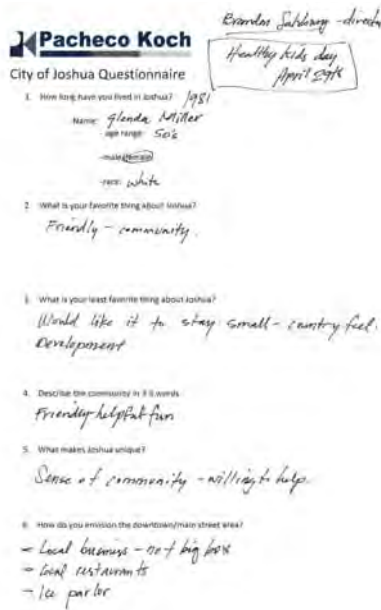 Brandon
Healthy kids day
April 29th
Pacheco Koch
City of Joshua Questionnaire
1. How long have you lived in Joshua? 1981
Name: Glenda Miller
-age range: 50's
-male/female
-race: white
2. What is your favorite thing about Joshua?
Friendly - community.
3. What is your least favorite thing about Joshua?
Would like it to stay small - country feel.
Development
4. Describe the community in 3-5 words
Friendly helpful fun
5. What makes Joshua unique?
Sense of community - willing to help.
6. How do you envision the downtown/main street area?
- Local business - not big box
- local restaurants
- Ice parlor